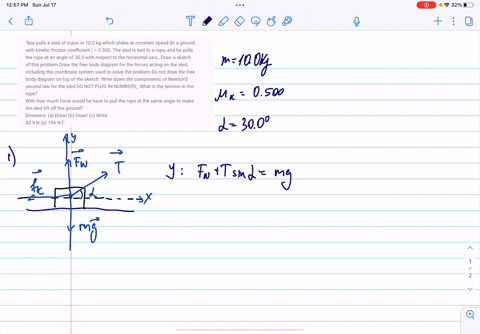 12:57 PM Sun Jul 17
32%
"boy pulls a sled of mass m 10.0 kg which slides at constant speed On a ground
with kinetic friction coefficient / = 0.500. The sled is tied to a rope, and he pulls
the rope at an angle of 30.0 with respect to the horizontal axis_ Draw a sketch
of this problem Draw the free body diagram for the forces acting on the sled,
including the coordinate system used to solve the problem Do not draw the free
body diagram on top of the sketch: Write down the components of Newton'$
second law for the sled DO NOT PLUG IN NUMBERS_ What is the tension in the
rope?
With how much force would be have to pull the rope at the same angle to make
the sled lift off the ground?
[Answers: (a) Draw! (b) Draw! (c) Write'
43.9 N (e) 196 N ]"
m = 10.0 kg
μk = 0.500
α = 30.0°
1)
y
FN
T
fk
α
x
mg
y: FN + T sin α = mg
1
2